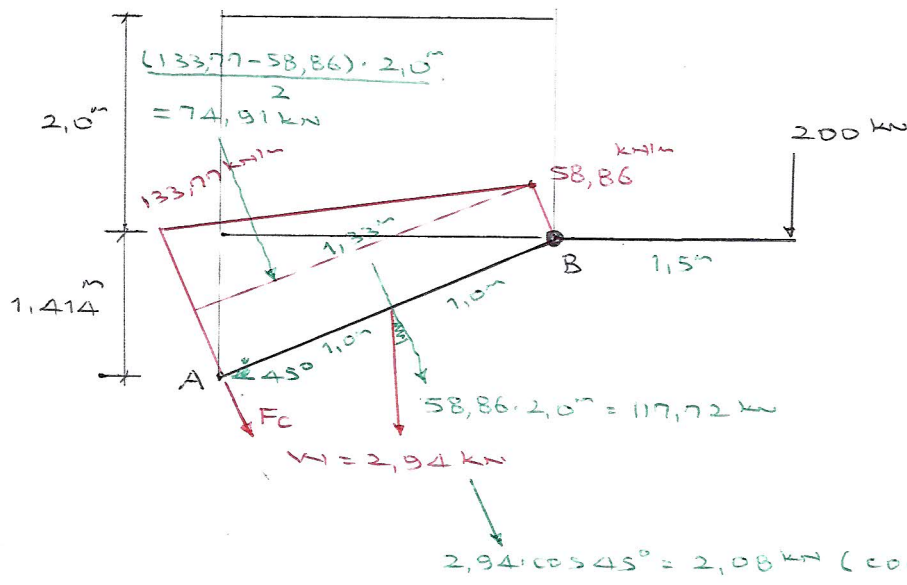 (133,77-58,86)·2,0m
2
= 74,91 kN
2,0m
200 kN
133,77 kN/m
kN/m
58,86
1,33m
B
1,5m
1,414m
1,0m
1,0m
A
45°
58,86·2,0m = 117,72 kN
Fc
W = 2,94 kN
2,94·cos45° = 2,08 kN (co